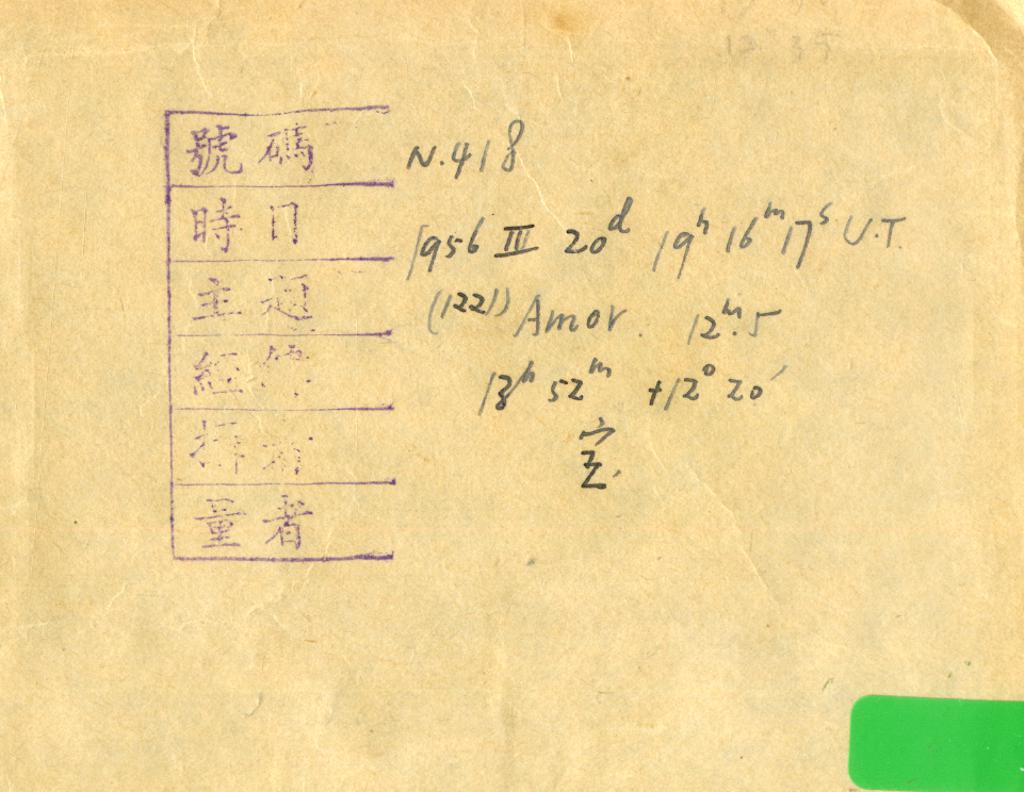 號碼 N.418
時日 1956 III 20ᵈ 19ʰ 16ᵐ 17ˢ U.T.
主題 (1221) Amor. 12ᵐ.5
經緯 13ʰ 52ᵐ +12° 20′
量者